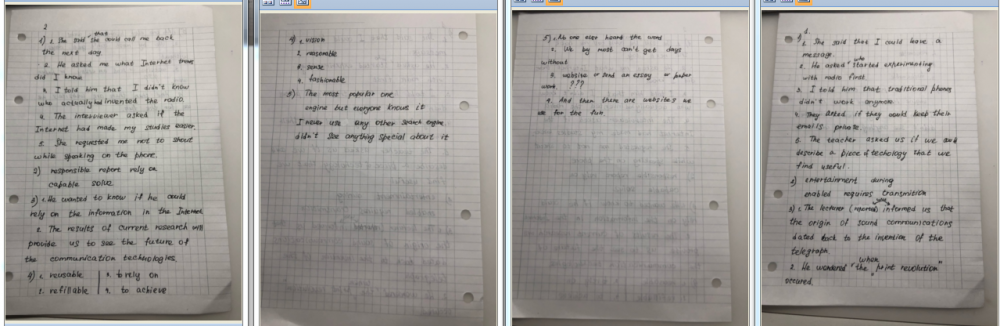 2
1) 1. She said that she could call me back
the next day.
2. He asked me what Internet
did I know
3. I told him that I didn't know
who actually had invented the radio.
4. The interviewer asked if the
Internet had made my studies easier.
5. She requested me not to shout
while speaking on the phone.
2) responsible report rely on
capable solve
3) 1. He wanted to know if he could
rely on the information in the Internet
2. The results of current research will
provide us to see the future of
the communication technologies.
4) 1. reusable 3. to rely on
2. refillable 4. to achieve
4) 1. vision
2. reasonable
3. sense
4. fashionable
5) The most popular one
engine but everyone knows it
I never use any other search engine.
didn't see anything special about it
5) 1. No one ever heard the word
2. We by most can't get days
without
3. website or send an essay or paper
work. ???
4. And then there are websites we
use for the fun.
1.
1) 1. She said that I could leave a
message.
2. He asked who started experimenting
with radio first.
3. I told him that traditional phones
didn't work anymore.
4. They asked if they would keep their
emails private.
5. The teacher asked us if we and
describe a piece of techology that we
find useful.
2) entertainment during
enabled requires transmition
3) 1. The lecturer informed us that
the origin of sound communications
dated back to the invention of the
telegraph.
2. He wondered when "the print revolution"
occured.